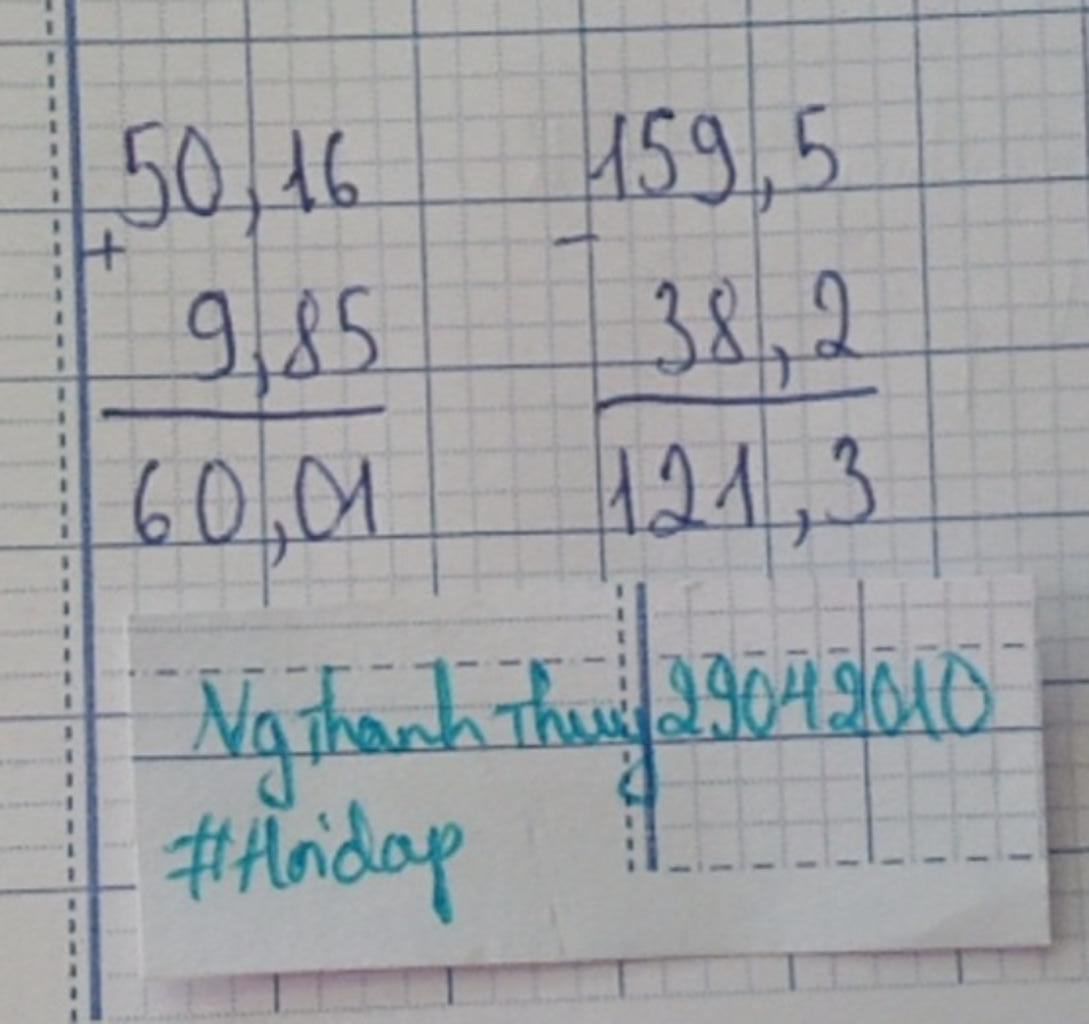 50,16
+
9,85
60,01
159,5
-
38,2
121,3
Ng Thanh Thuy 29042010
#Hoidap